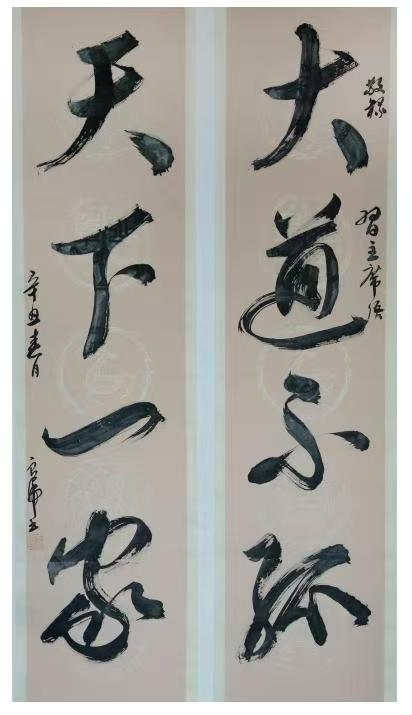 大道不孤
敬録
习主席语
天下一家
辛丑春月